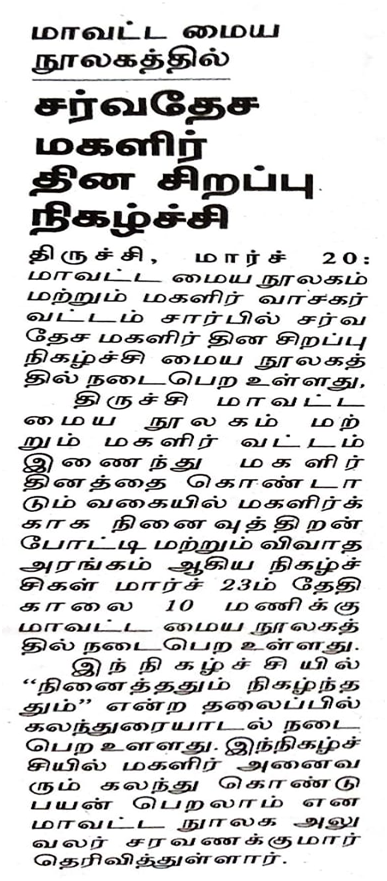 மாவட்ட மைய
நூலகத்தில்
சர்வதேச
மகளிர்
தின சிறப்பு
நிகழ்ச்சி
திருச்சி, மார்ச் 20:
மாவட்ட மைய நூலகம்
மற்றும் மகளிர் வாசகர்
வட்டம் சார்பில் சர்வ
தேச மகளிர் தின சிறப்பு
நிகழ்ச்சி மைய நூலகத்
தில் நடைபெற உள்ளது.
திருச்சி மாவட்ட
மைய நூலகம் மற்
றும் மகளிர் வட்டம்
இணைந்து மகளிர்
தினத்தை கொண்டா
டும் வகையில் மகளிர்க்
காக நினைவுத்திறன்
போட்டி மற்றும் விவாத
அரங்கம் ஆகிய நிகழ்ச்
சிகள் மார்ச் 23ம் தேதி
காலை 10 மணிக்கு
மாவட்ட மைய நூலகத்
தில் நடைபெற உள்ளது.
இந்நிகழ்ச்சியில்
“நினைத்ததும் நிகழ்ந்த
தும்” என்ற தலைப்பில்
கலந்துரையாடல் நடை
பெற உளளது. இந்நிகழ்ச்
சியில் மகளிர் அனைவ
ரும் கலந்து கொண்டு
பயன் பெறலாம் என
மாவட்ட நுாலக அலு
வலர் சரவணக்குமார்
தெரிவித்துள்ளார்.